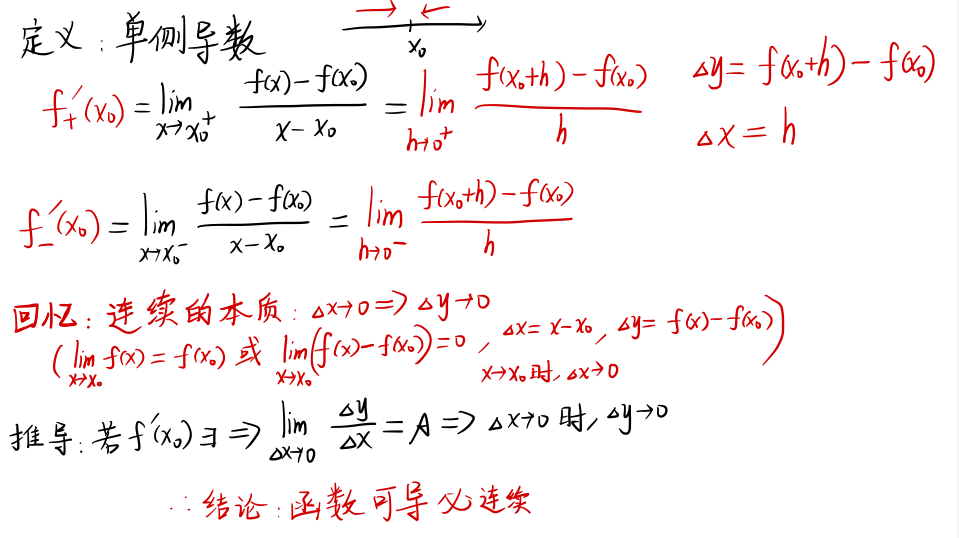 定义：单侧导数
x₀
f₊′(x₀) = lim_{x→x₀⁺} (f(x)−f(x₀))/(x−x₀) = lim_{h→0⁺} (f(x₀+h)−f(x₀))/h
△y = f(x₀+h) − f(x₀)
△x = h
f₋′(x₀) = lim_{x→x₀⁻} (f(x)−f(x₀))/(x−x₀) = lim_{h→0⁻} (f(x₀+h)−f(x₀))/h
回忆：连续的本质：△x→0 => △y→0
(lim_{x→x₀} f(x) = f(x₀) 或 lim_{x→x₀}(f(x)−f(x₀)) = 0 , △x = x−x₀, △y = f(x)−f(x₀)
x→x₀时, △x→0)
推导：若f′(x₀)∃ => lim_{△x→0} △y/△x = A => △x→0时, △y→0
∴结论：函数可导必连续